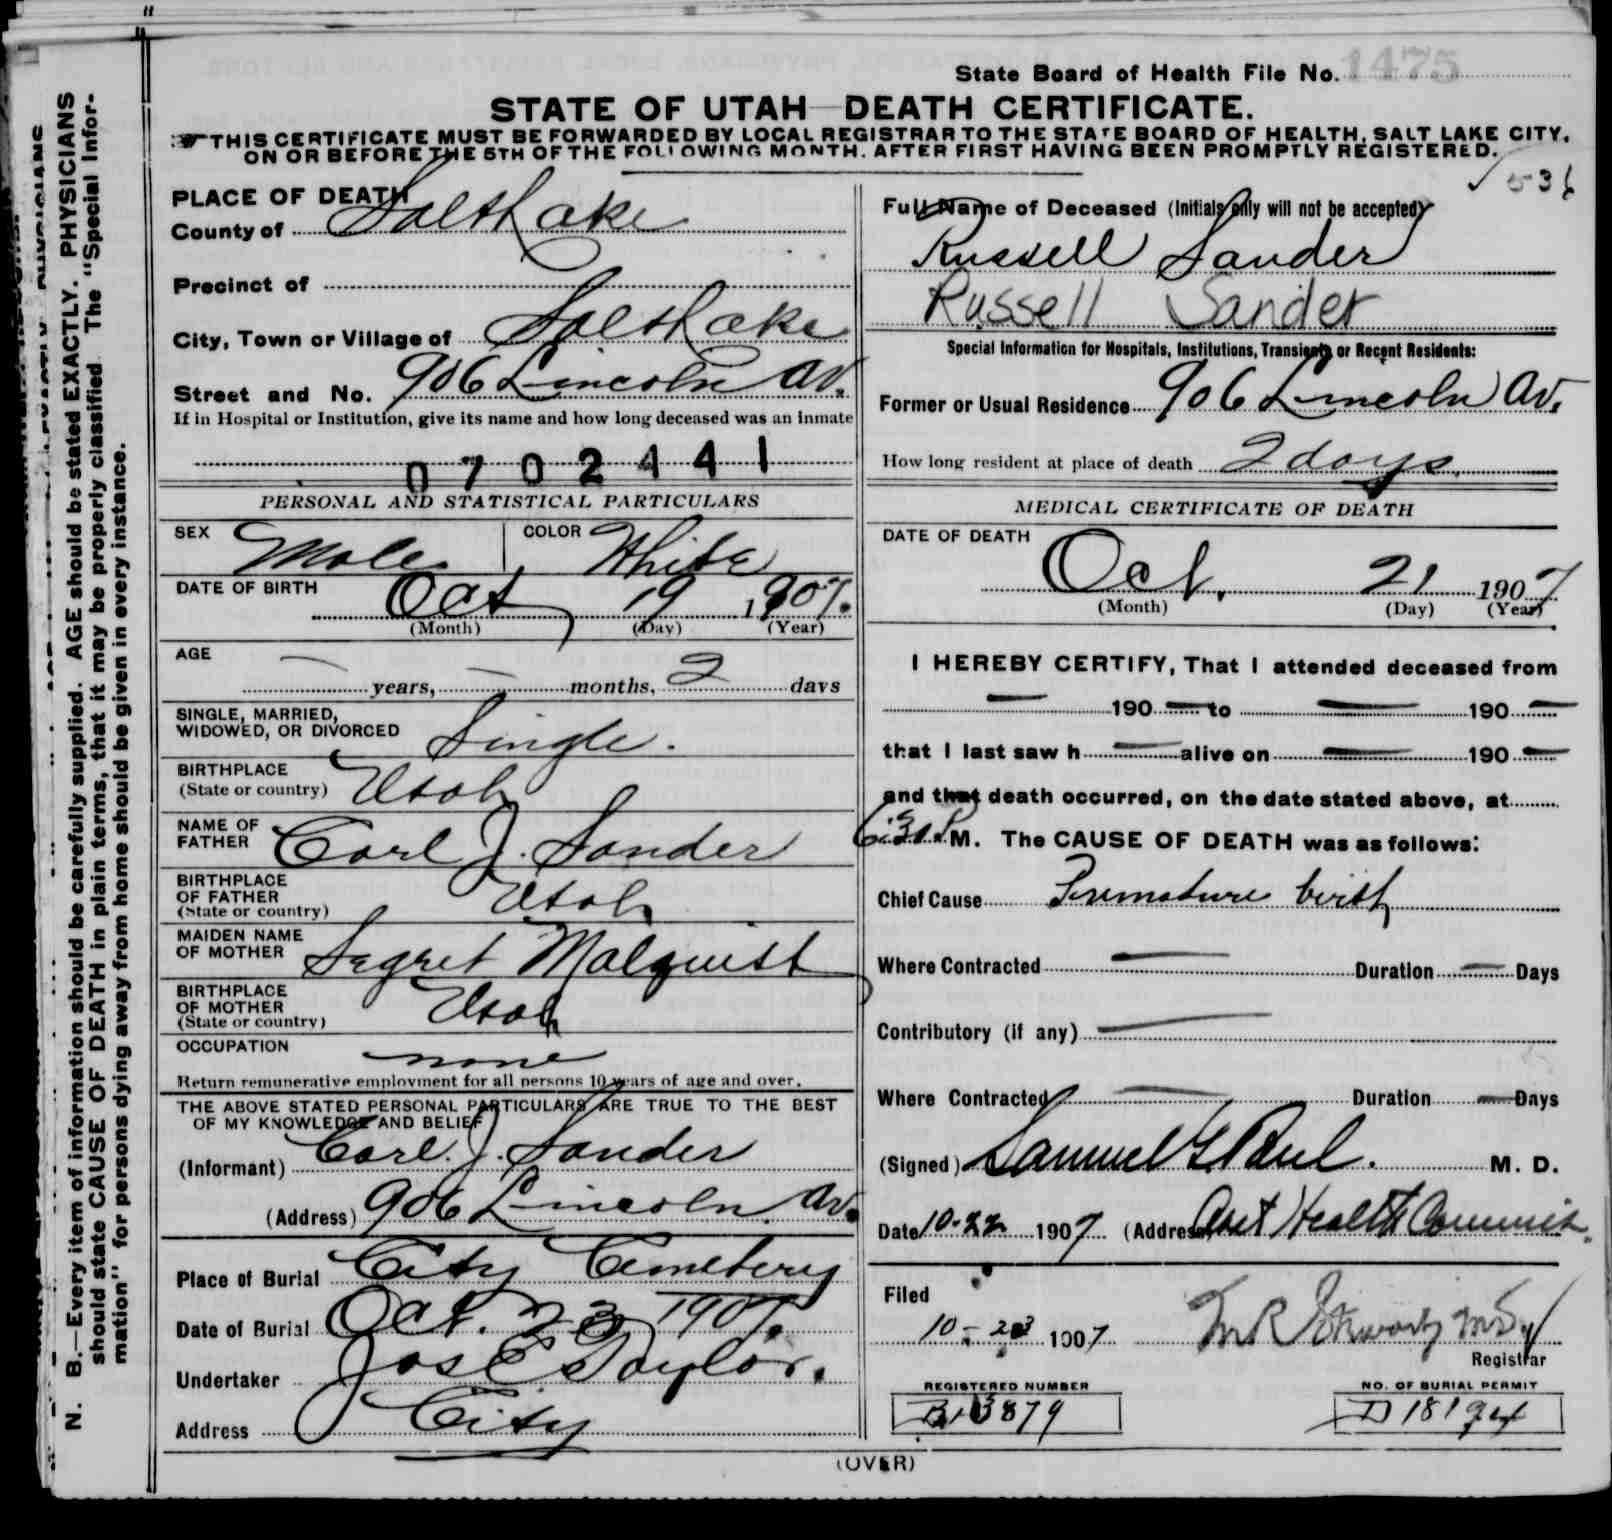 State Board of Health File No. 1475
STATE OF UTAH—DEATH CERTIFICATE.
THIS CERTIFICATE MUST BE FORWARDED BY LOCAL REGISTRAR TO THE STATE BOARD OF HEALTH, SALT LAKE CITY,
ON OR BEFORE THE 5TH OF THE FOLLOWING MONTH. AFTER FIRST HAVING BEEN PROMPTLY REGISTERED.
N. B.—Every item of information should be carefully supplied. AGE should be stated EXACTLY. PHYSICIANS
should state CAUSE OF DEATH in plain terms, that it may be properly classified The "Special Infor-
mation" for persons dying away from home should be given in every instance.
PLACE OF DEATH
County of Salt Lake
Precinct of
City, Town or Village of Salt Lake
Street and No. 906 Lincoln Av.
If in Hospital or Institution, give its name and how long deceased was an inmate
0702441
PERSONAL AND STATISTICAL PARTICULARS
SEX Male COLOR White
DATE OF BIRTH Oct 19 1907.
(Month) (Day) (Year)
AGE
— years, — months, 2 days
SINGLE, MARRIED,
WIDOWED, OR DIVORCED Single.
BIRTHPLACE
(State or country) Utah
NAME OF
FATHER Carl J. Sander
BIRTHPLACE
OF FATHER
(State or country) Utah
MAIDEN NAME
OF MOTHER Segret Malquist
BIRTHPLACE
OF MOTHER
(State or country) Utah
OCCUPATION none
Return remunerative employment for all persons 10 years of age and over.
THE ABOVE STATED PERSONAL PARTICULARS ARE TRUE TO THE BEST
OF MY KNOWLEDGE AND BELIEF
(Informant) Carl. J. Sander
(Address) 906 Lincoln Av.
Place of Burial City Cemetery
Date of Burial Oct. 23 1907.
Undertaker Jos E Taylor.
Address City
536
Full Name of Deceased (Initials only will not be accepted)
Russell Sander
Russell Sander
Special Information for Hospitals, Institutions, Transients or Recent Residents:
Former or Usual Residence 906 Lincoln Av.
How long resident at place of death 2 days.
MEDICAL CERTIFICATE OF DEATH
DATE OF DEATH
Oct. 21 1907
(Month) (Day) (Year)
I HEREBY CERTIFY, That I attended deceased from
— 190 — to — 190 —
that I last saw h — alive on — 190 —
and that death occurred, on the date stated above, at
6:30 P. M. The CAUSE OF DEATH was as follows:
Chief Cause Premature birth
Where Contracted — Duration — Days
Contributory (if any) —
Where Contracted — Duration — Days
(Signed) Samuel G Paul. M. D.
Date 10-22 1907 (Address) Asst Health Commis.
Filed
10-23 1907
Registrar
REGISTERED NUMBER
B 3879
NO. OF BURIAL PERMIT
D 18194
(OVER)